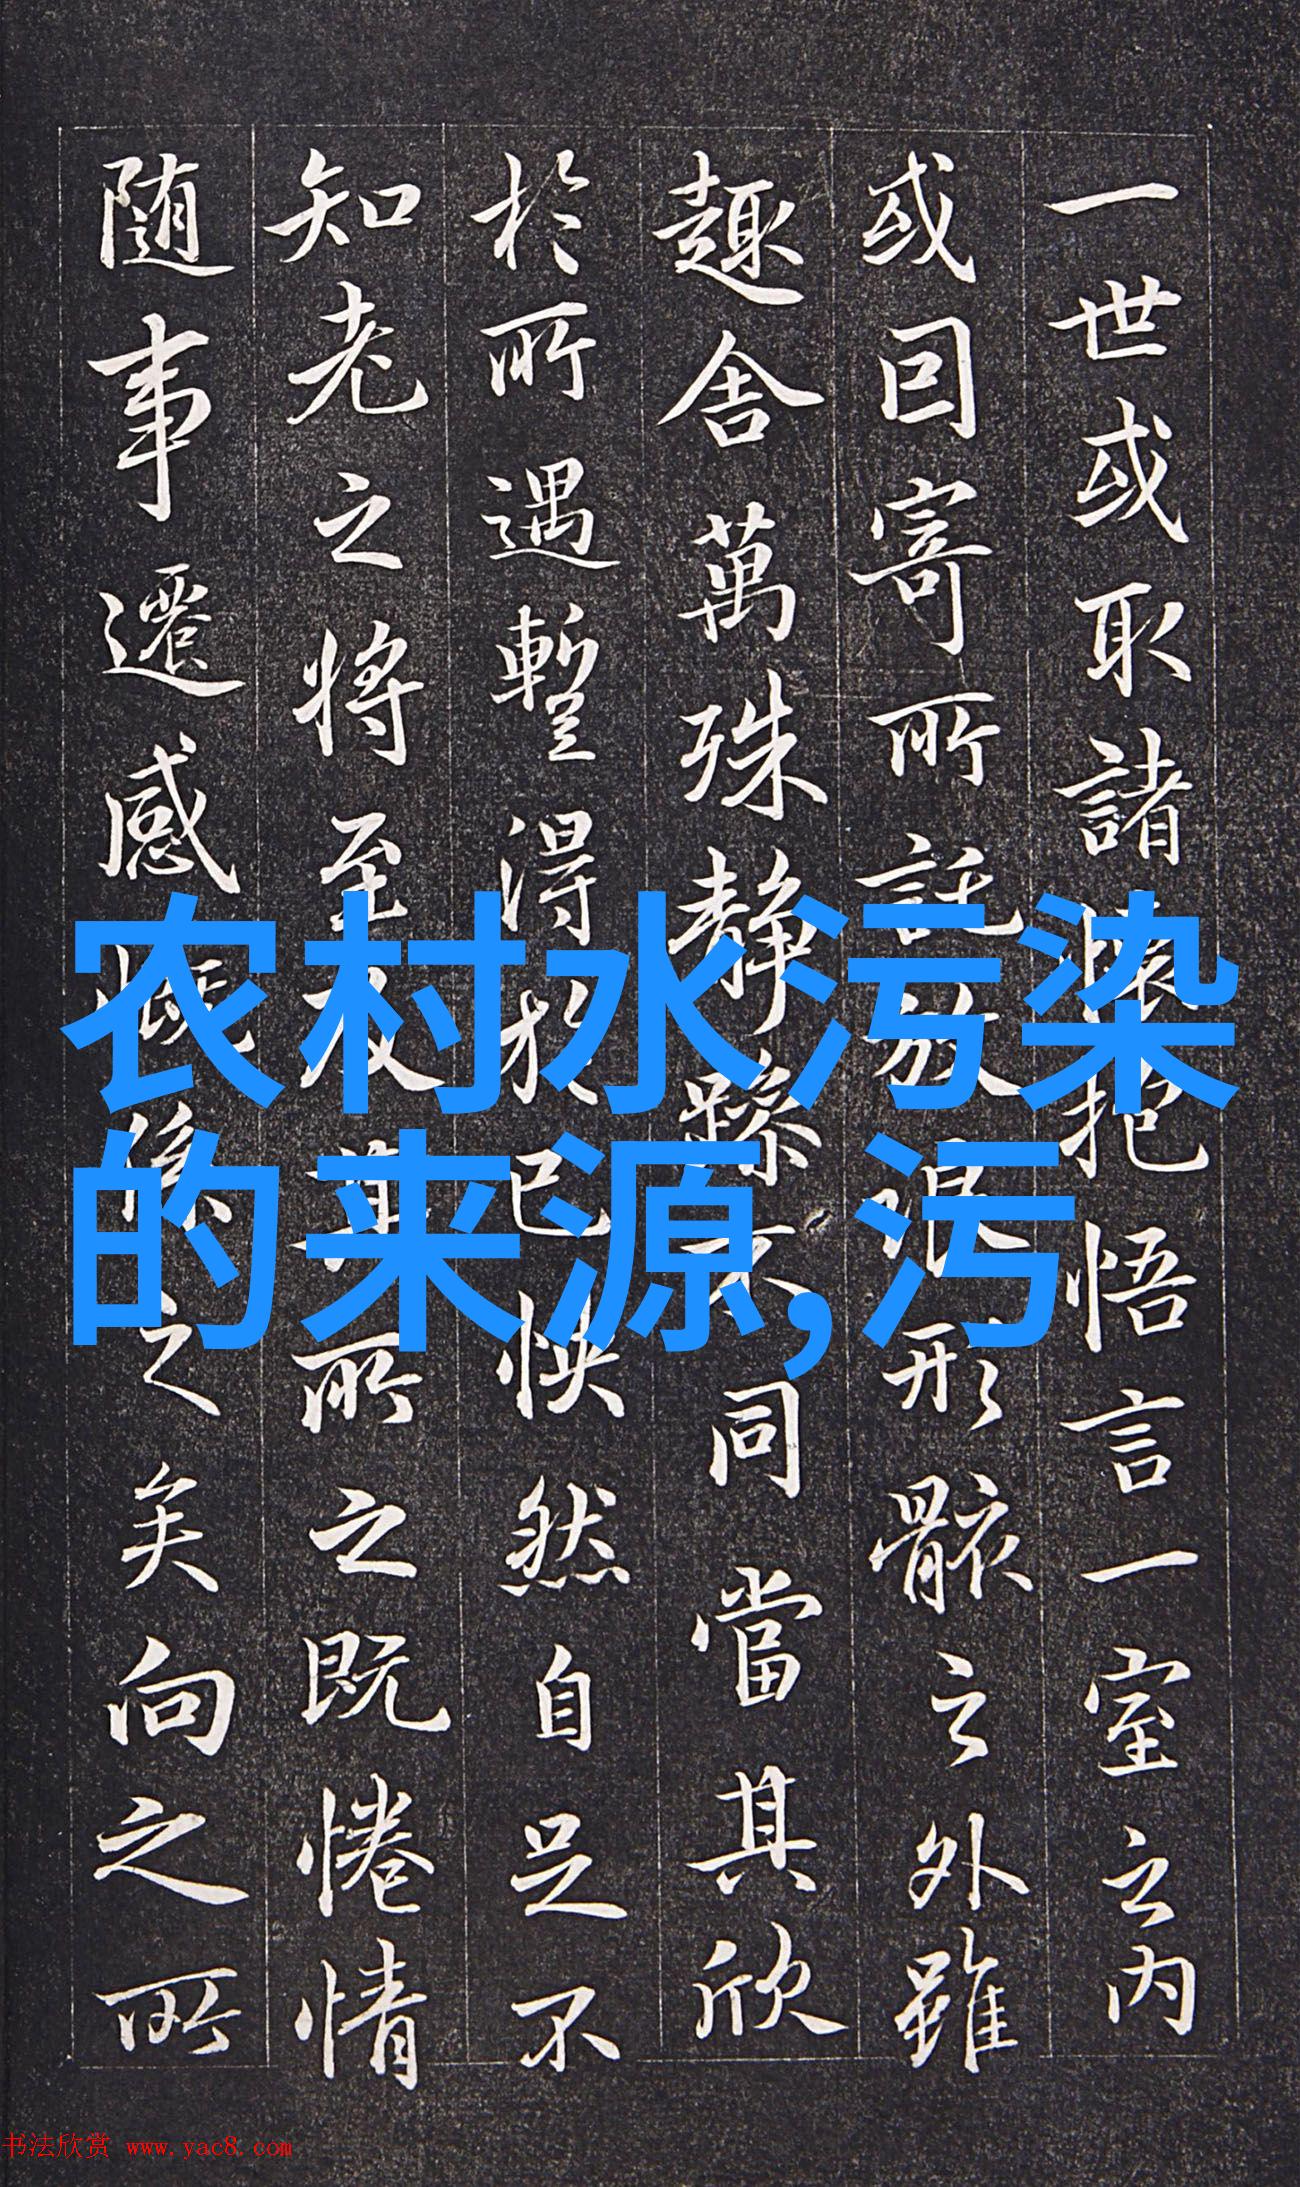 一世或取諸懷抱悟言一室之内
或因寄所託放浪形骸之外雖
趣舍萬殊静躁不同當其欣
於所遇暫得於己怏然自足不
知老之將至及其所之既惓情
随事遷感慨係之矣向之所
农村水污染
的来源,污
书法欣赏 www.yac8.com